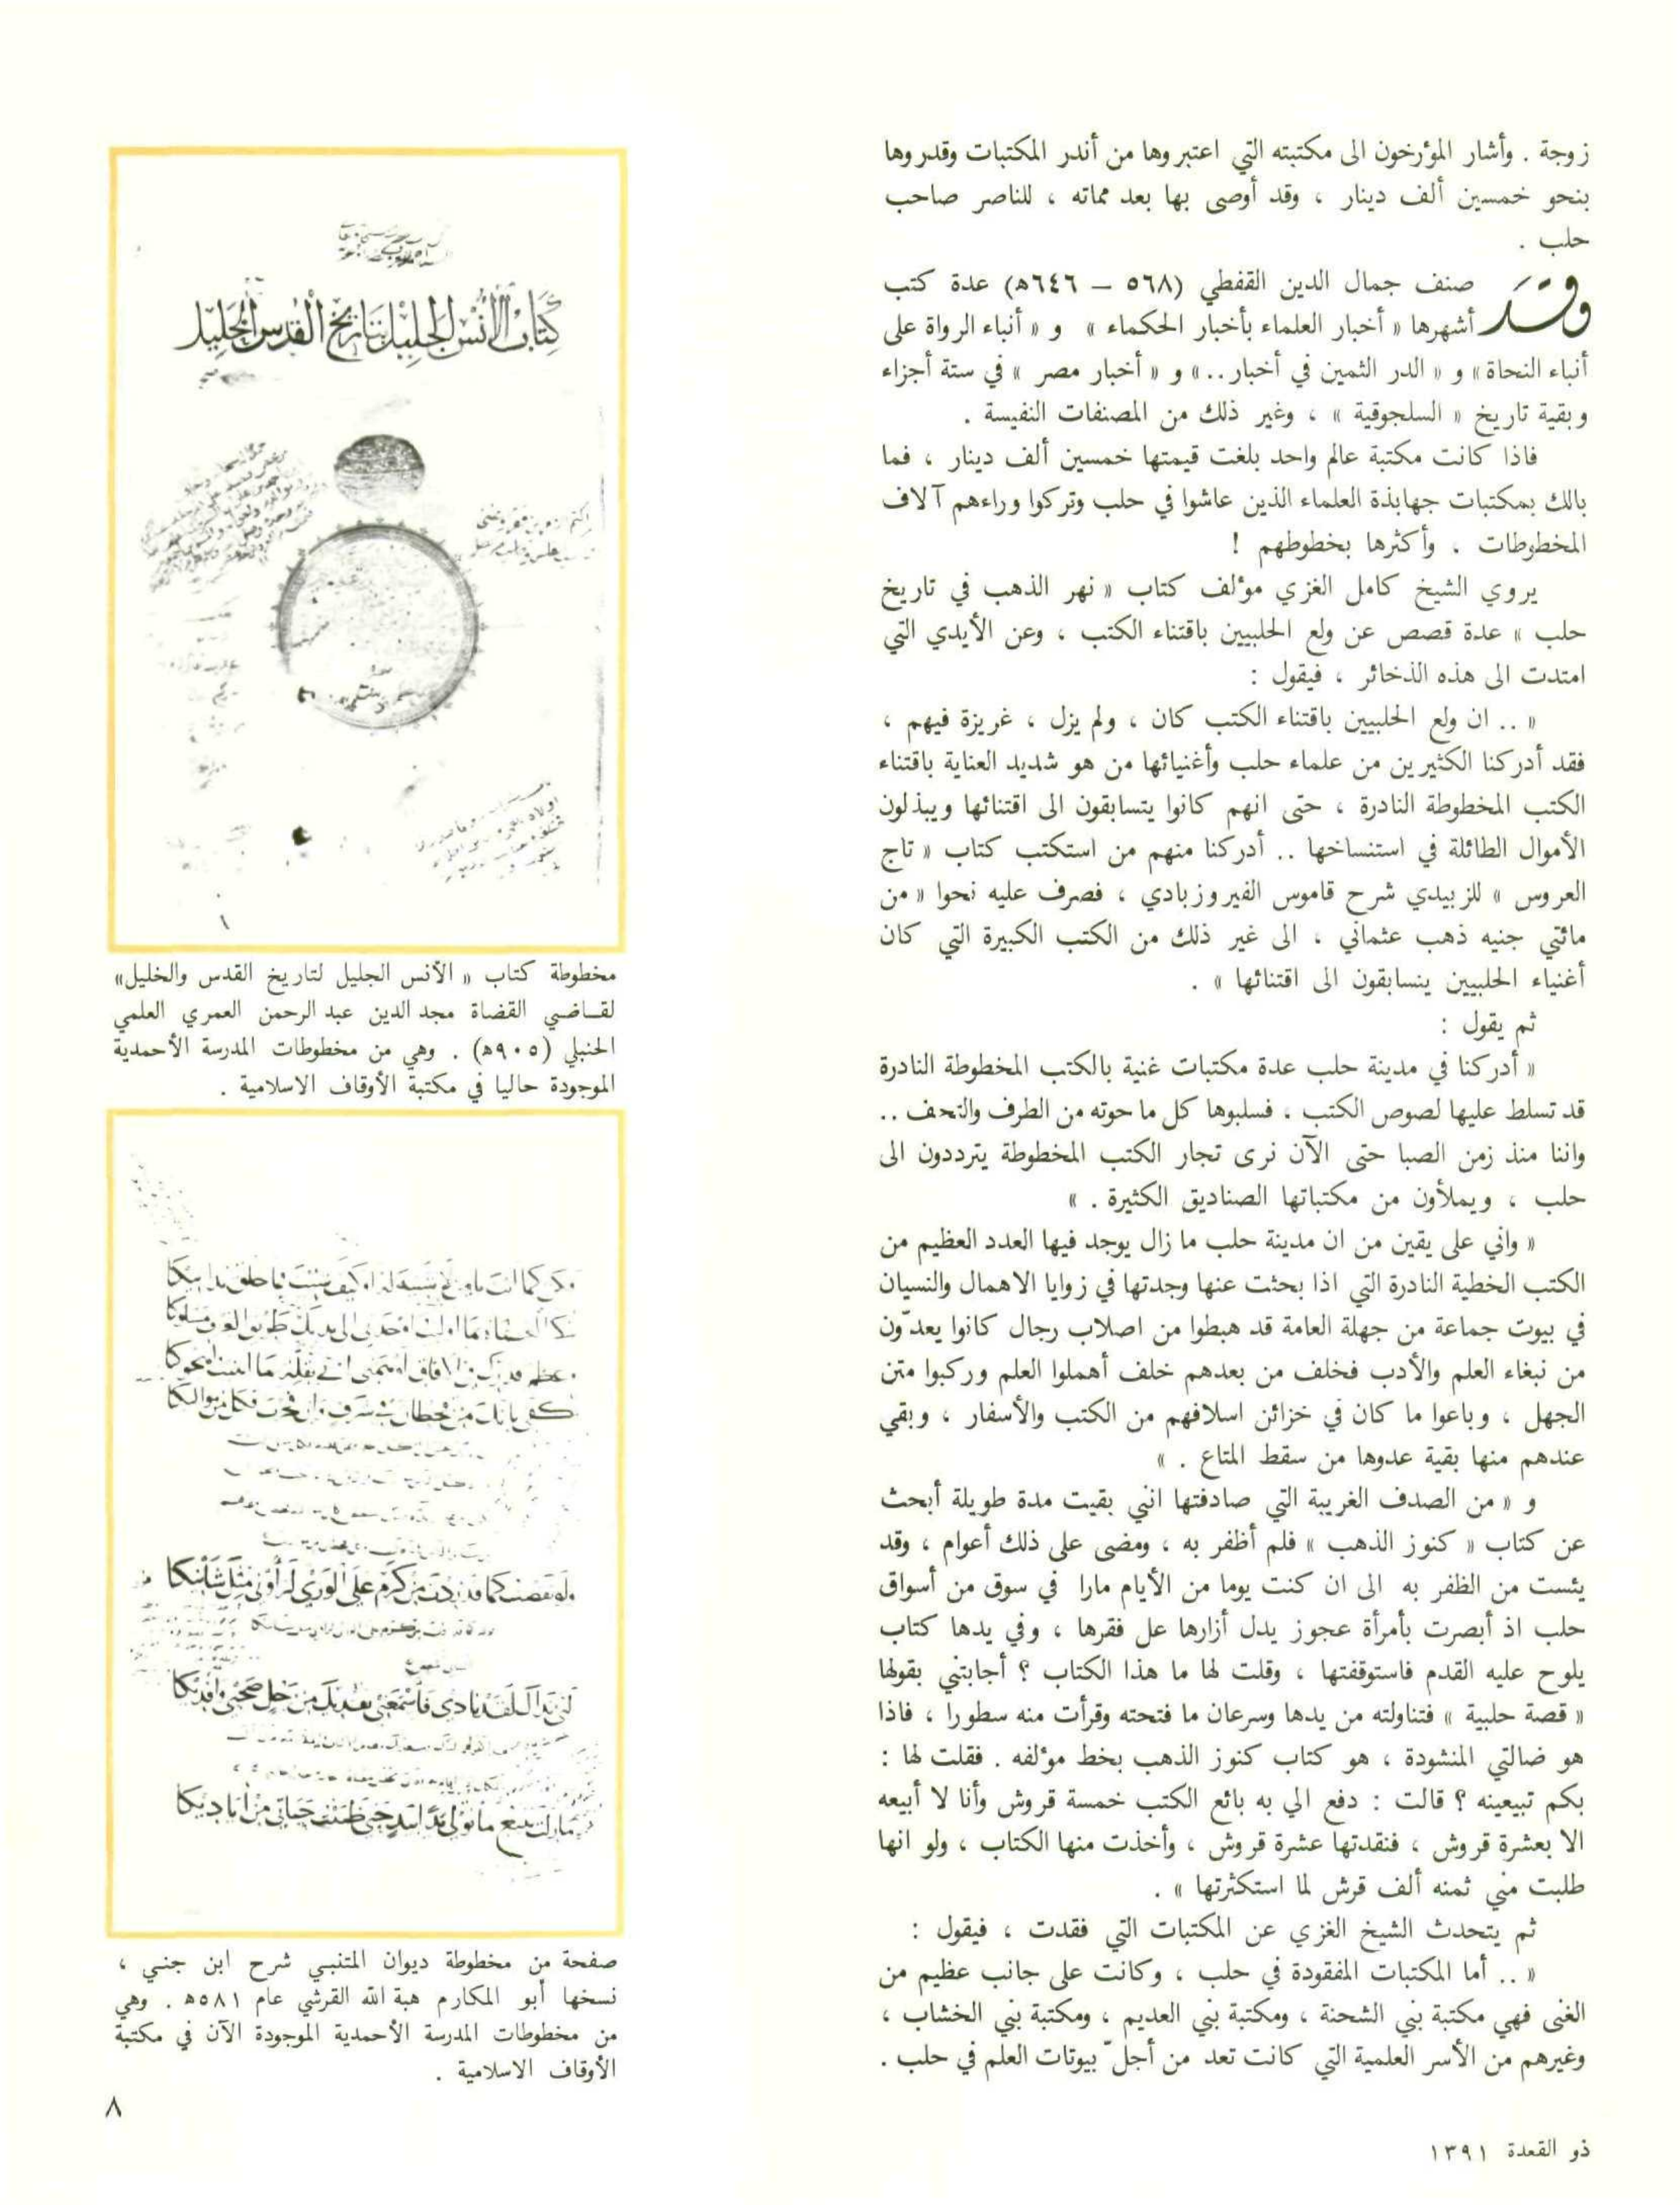 زوجة . وأشار المؤرخون الى مكتبته التي اعتبروها من أندر المكتبات وقدروها
بنحو خمسين ألف دينار ، وقد أوصى بها بعد مماته ، للناصر صاحب
حلب .
وقد صنف جمال الدين القفطي (٥٦٨ – ٦٤٦ه) عدة كتب
أشهرها « أخبار العلماء بأخبار الحكماء » و « أنباء الرواة على
أنباء النحاة » و « الدر الثمين في أخبار .. » و « أخبار مصر » في ستة أجزاء
وبقية تاريخ « السلجوقية » ، وغير ذلك من المصنفات النفيسة .
فاذا كانت مكتبة عالم واحد بلغت قيمتها خمسين ألف دينار ، فما
بالك بمكتبات جهابذة العلماء الذين عاشوا في حلب وتركوا وراءهم آلاف
المخطوطات . وأكثرها بخطوطهم !
يروي الشيخ كامل الغزي مؤلف كتاب « نهر الذهب في تاريخ
حلب » عدة قصص عن ولع الحلبيين باقتناء الكتب ، وعن الأيدي التي
امتدت الى هذه الذخائر ، فيقول :
« .. ان ولع الحلبيين باقتناء الكتب كان ، ولم يزل ، غريزة فيهم ،
فقد أدركنا الكثيرين من علماء حلب وأغنيائها من هو شديد العناية باقتناء
الكتب المخطوطة النادرة ، حتى انهم كانوا يتسابقون الى اقتنائها ويبذلون
الأموال الطائلة في استنساخها .. أدركنا منهم من استكتب كتاب « تاج
العروس » للزبيدي شرح قاموس الفيروزبادي ، فصرف عليه نحوا « من
مائتي جنيه ذهب عثماني ، الى غير ذلك من الكتب الكبيرة التي كان
أغنياء الحلبيين يتسابقون الى اقتنائها » .
ثم يقول :
« أدركنا في مدينة حلب عدة مكتبات غنية بالكتب المخطوطة النادرة
قد تسلط عليها لصوص الكتب ، فسلبوها كل ما حوته من الطرف والتحف ..
واننا منذ زمن الصبا حتى الآن نرى تجار الكتب المخطوطة يترددون الى
حلب ، ويملأون من مكتباتها الصناديق الكثيرة . »
« واني على يقين من ان مدينة حلب ما زال يوجد فيها العدد العظيم من
الكتب الخطية النادرة التي اذا بحثت عنها وجدتها في زوايا الاهمال والنسيان
في بيوت جماعة من جهلة العامة قد هبطوا من اصلاب رجال كانوا يعدّون
من نبغاء العلم والأدب فخلف من بعدهم خلف أهملوا العلم وركبوا متن
الجهل ، وباعوا ما كان في خزائن اسلافهم من الكتب والأسفار ، وبقي
عندهم منها بقية عدوها من سقط المتاع . »
و « من الصدف الغريبة التي صادفتها انني بقيت مدة طويلة أبحث
عن كتاب « كنوز الذهب » فلم أظفر به ، ومضى على ذلك أعوام ، وقد
يئست من الظفر به الى ان كنت يوما من الأيام مارا في سوق من أسواق
حلب اذ أبصرت بأمرأة عجوز يدل أزارها عل فقرها ، وفي يدها كتاب
يلوح عليه القدم فاستوقفتها ، وقلت لها ما هذا الكتاب ؟ أجابتني بقولها
« قصة حلبية » فتناولته من يدها وسرعان ما فتحته وقرأت منه سطورا ، فاذا
هو ضالتي المنشودة ، هو كتاب كنوز الذهب بخط مؤلفه . فقلت لها :
بكم تبيعينه ؟ قالت : دفع الي به بائع الكتب خمسة قروش وأنا لا أبيعه
الا بعشرة قروش ، فنقدتها عشرة قروش ، وأخذت منها الكتاب ، ولو انها
طلبت مني ثمنه ألف قرش لما استكثرتها » .
ثم يتحدث الشيخ الغزي عن المكتبات التي فقدت ، فيقول :
« .. أما المكتبات المفقودة في حلب ، وكانت على جانب عظيم من
الغنى فهي مكتبة بني الشحنة ، ومكتبة بني العديم ، ومكتبة بني الخشاب ،
وغيرهم من الأسر العلمية التي كانت تعد من أجلّ بيوتات العلم في حلب .
كتاب الأنس الجليل بتاريخ القدس والخليل
١
مخطوطة كتاب « الأنس الجليل لتاريخ القدس والخليل»
لقاضي القضاة مجد الدين عبد الرحمن العمري العلمي
الحنبلي (٩٠٥ه) . وهي من مخطوطات المدرسة الأحمدية
الموجودة حاليا في مكتبة الأوقاف الاسلامية .
صفحة من مخطوطة ديوان المتنبي شرح ابن جني ،
نسخها أبو المكارم هبة الله القرشي عام ٥٨١ه . وهي
من مخطوطات المدرسة الأحمدية الموجودة الآن في مكتبة
الأوقاف الاسلامية .
٨
ذو القعدة ١٣٩١